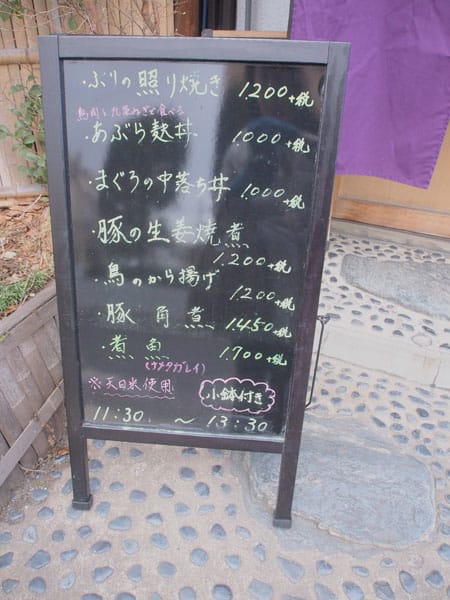 ・ぶりの照り焼き 1.200+税
鳥肉と九条ねぎを食べる
・あぶら麩丼 1.000+税
・まぐろの中落ち丼 1.000+税
・豚の生姜焼煮 1.200+税
・鳥のから揚げ 1.200+税
・豚角煮 1.450+税
・煮魚 1.700+税
(ナメタガレイ)
※天日米使用
小鉢付き
11:30 〜 13:30